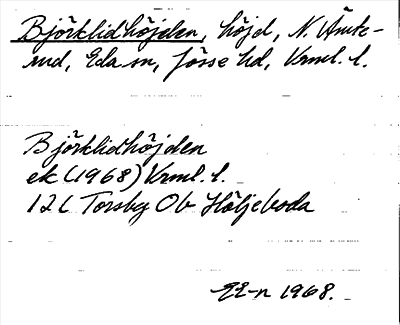 Björklidhöjden, höjd, N. Åmte-
rud, Eda sn, Jösse hd, Vrml. l.
Björklidhöjden
ek (1968) Vrml. l.
12 C Torsby Ob Höljeboda
1968.